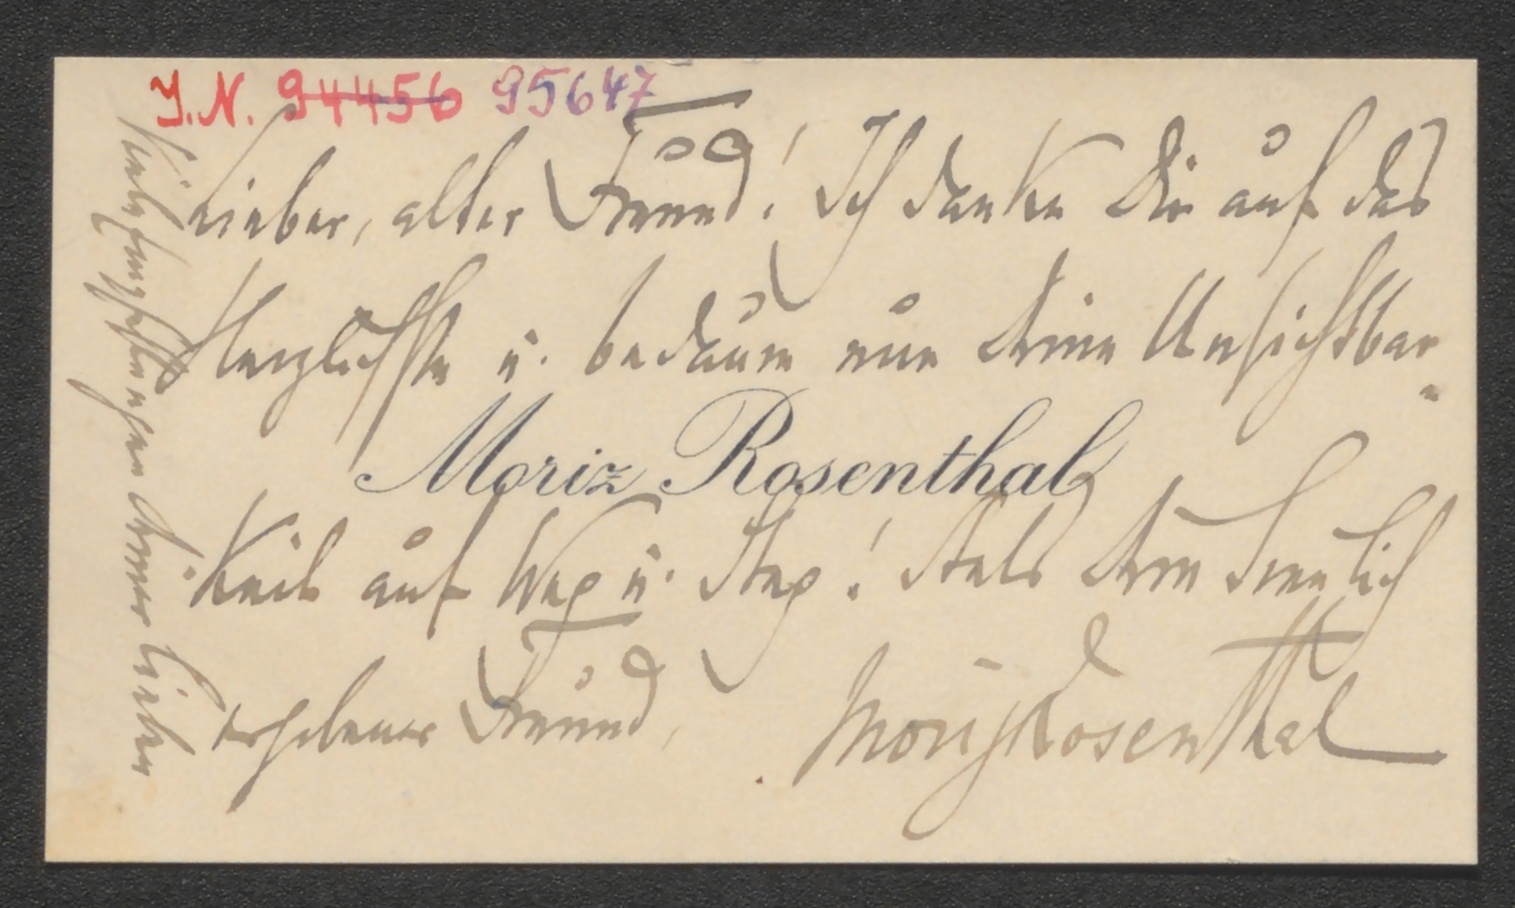 J.N. 94456 95647
Lieber, alter Freund! Ich danke Dir auf das
Herzlichste u. bedaure nur Deine Unsichtbar-
Moriz Rosenthal
keit auf Weg u. Steg! Stets Dein Dir treulich
ergebener Freund,
Moriz Rosenthal
Viele Empfehlungen Deiner lieben